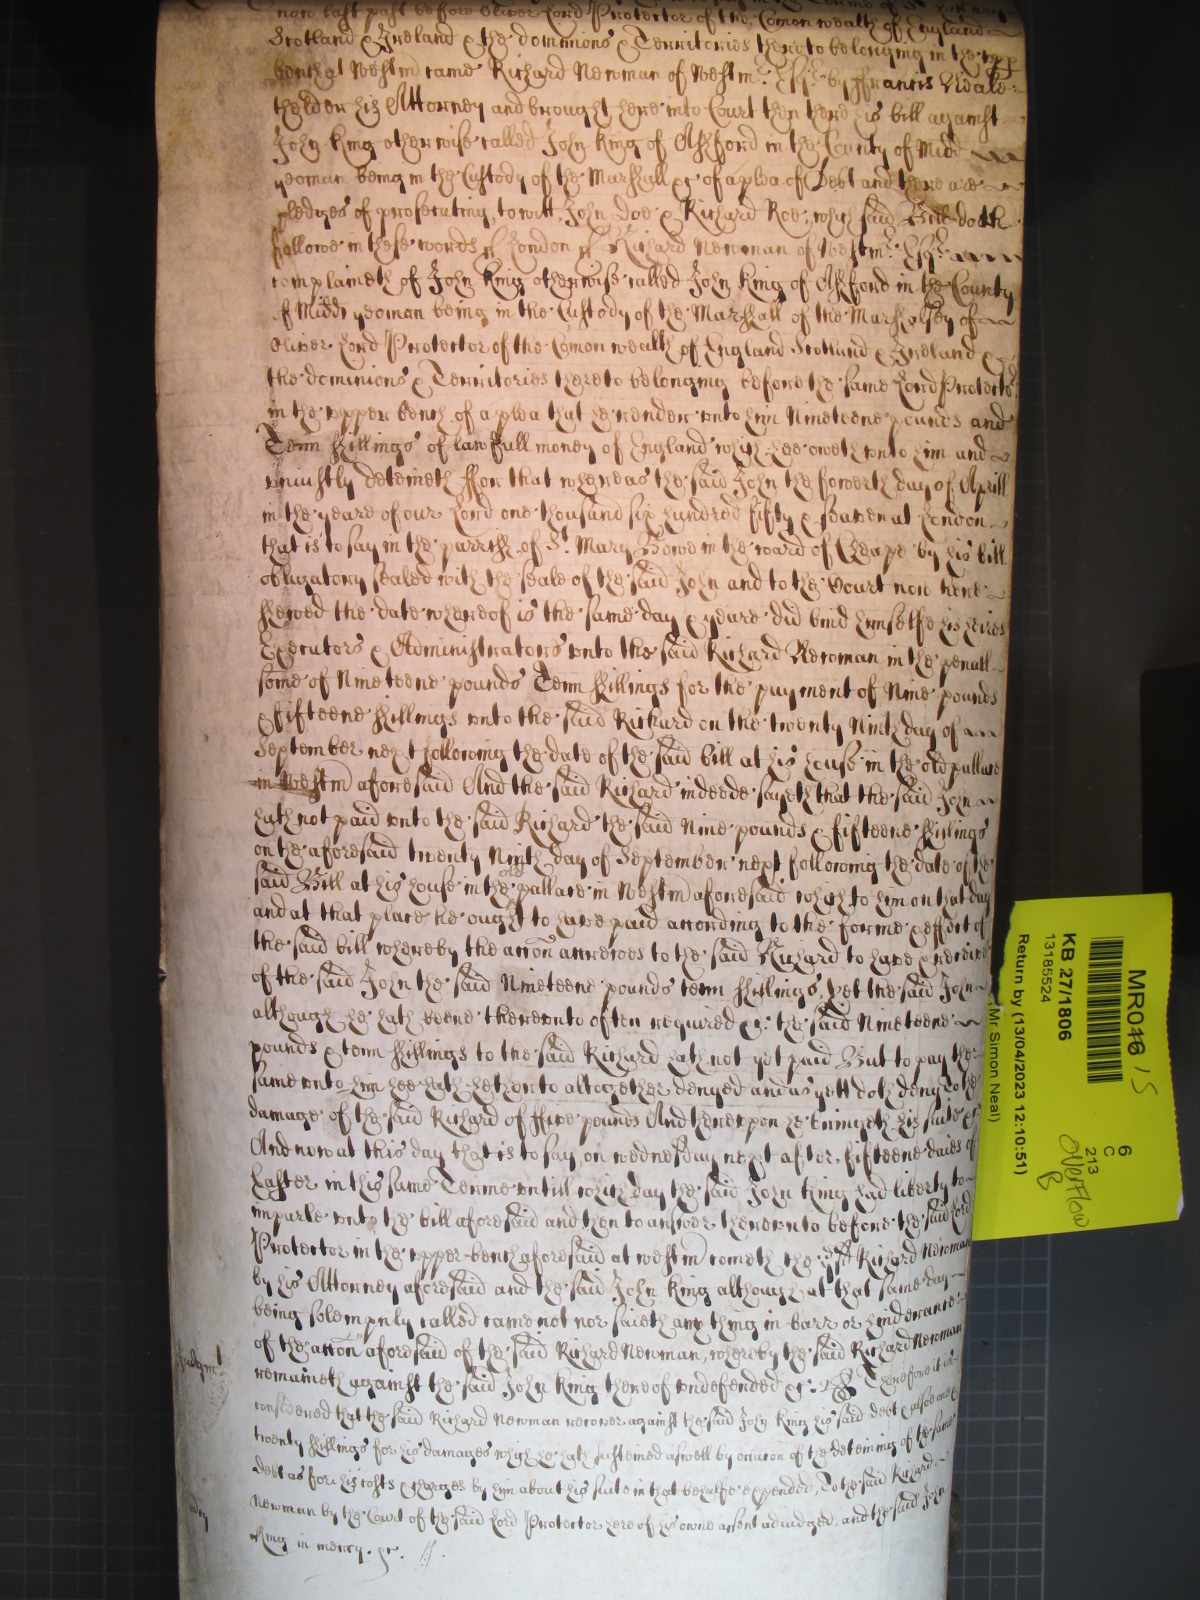 now last past before Oliver Lord Protector of the Comon wealth of England
Scotland & Ireland & the dominions & Territories thereto belonging in the upp
bench at Westmr came Richard Newman of Westmr Esqr by ffrancis Neale
the elder his Attorney and brought here into Court then there his bill against
John King otherwise called John King of Ashford in the County of Midd
yeoman being in the Custody of the Marshall &c of a plea of Debt and there are
pledges of prosecuting, to witt, John Doe & Richard Roe, which said Bill doth
followe in these words ss London ss Richard Newman of Westmr Esqr
complaineth of John King otherwise called John King of Ashford in the County
of Midd yeoman being in the Custody of the Marshall of the Marshalsey of
Oliver Lord Protector of the Comon wealth of England Scotland & Ireland &
the dominions & Territories thereto belonging before the same Lord Protector
in the upper bench of a plea that he render unto him Nineteene pounds and
Tenn shillings of lawfull money of England which hee oweth unto him and
uniustly deteineth ffor that whereas the said John the fowerth day of Aprill
in the yeare of our Lord one thousand six hundred fifty & seaven at London
that is to say in the parrish of St Mary Bowe in the ward of Cheape by his bill
obligatory sealed with the seale of the said John and to the Court now here
shewed the date whereof is the same day & yeare did bind himselfe his heires
Executors & Administrators unto the said Richard Newman in the penall
some of Nineteene pounds Tenn shillings for the payment of Nine pounds
& fifteene shillings unto the said Richard on the twenty Ninth day of
September next following the date of the said bill at his house in the old pallace
in Westmr aforesaid And the said Richard indeede sayeth that the said John
hath not paid unto the said Richard the said Nine pounds & fifteene shillings
on the aforesaid twenty Ninth day of September next following the date of the
said Bill at his house in the old pallace in Westmr aforesaid which to him on that day
and at that place he ought to have paid according to the forme & effect of
the said bill whereby the accon accrewes to the said Richard to have & receive
of the said John the said Nineteene pounds tenn shillings, Yet the said John
although he hath beene thereunto often required &c. the said Nineteene
pounds & tenn shillings to the said Richard hath not yet paid But to pay the
same unto him hee hath hetherto altogether denyed and as yett doth deny To the
damage of the said Richard of ffive pounds And thereupon he bringeth his suite &c
And now at this day that is to say, on wednesday next after fifteene daies of
Easter in this same Terme untill which day the said John King had liberty to
imparle unto the bill aforesaid and then to answer thereunto before the said Lord
Protector in the upper bench aforesaid at westmr cometh the sd Richard Newman
by his Attorney aforesaid and the said John King although at that same day
being solempnly called came not nor saieth any thing in barr or hinderance
of the accon aforesaid of the said Richard Newman, whereby the said Richard Newman
Judgmt
remaineth against the said John King thereof undefended &c. Therefore it is
considered that the said Richard Newman recover against the said John King his said debt & alsoe
twenty shillings for his damages which he hath susteined aswell by occasion of the deteining of the same
debt as for his costs & charges by him about his suite in that behalfe expended, To the said Richard
Newman by the Court of the said Lord Protector here of his owne assent adiudged. and the said John
King in mercy. &c.
mcy
MR016 15
KB 27/1806
13185524
Return by (13/04/2023 12:10:51)
(Mr Simon Neal)
6
C
213
Overflow
B